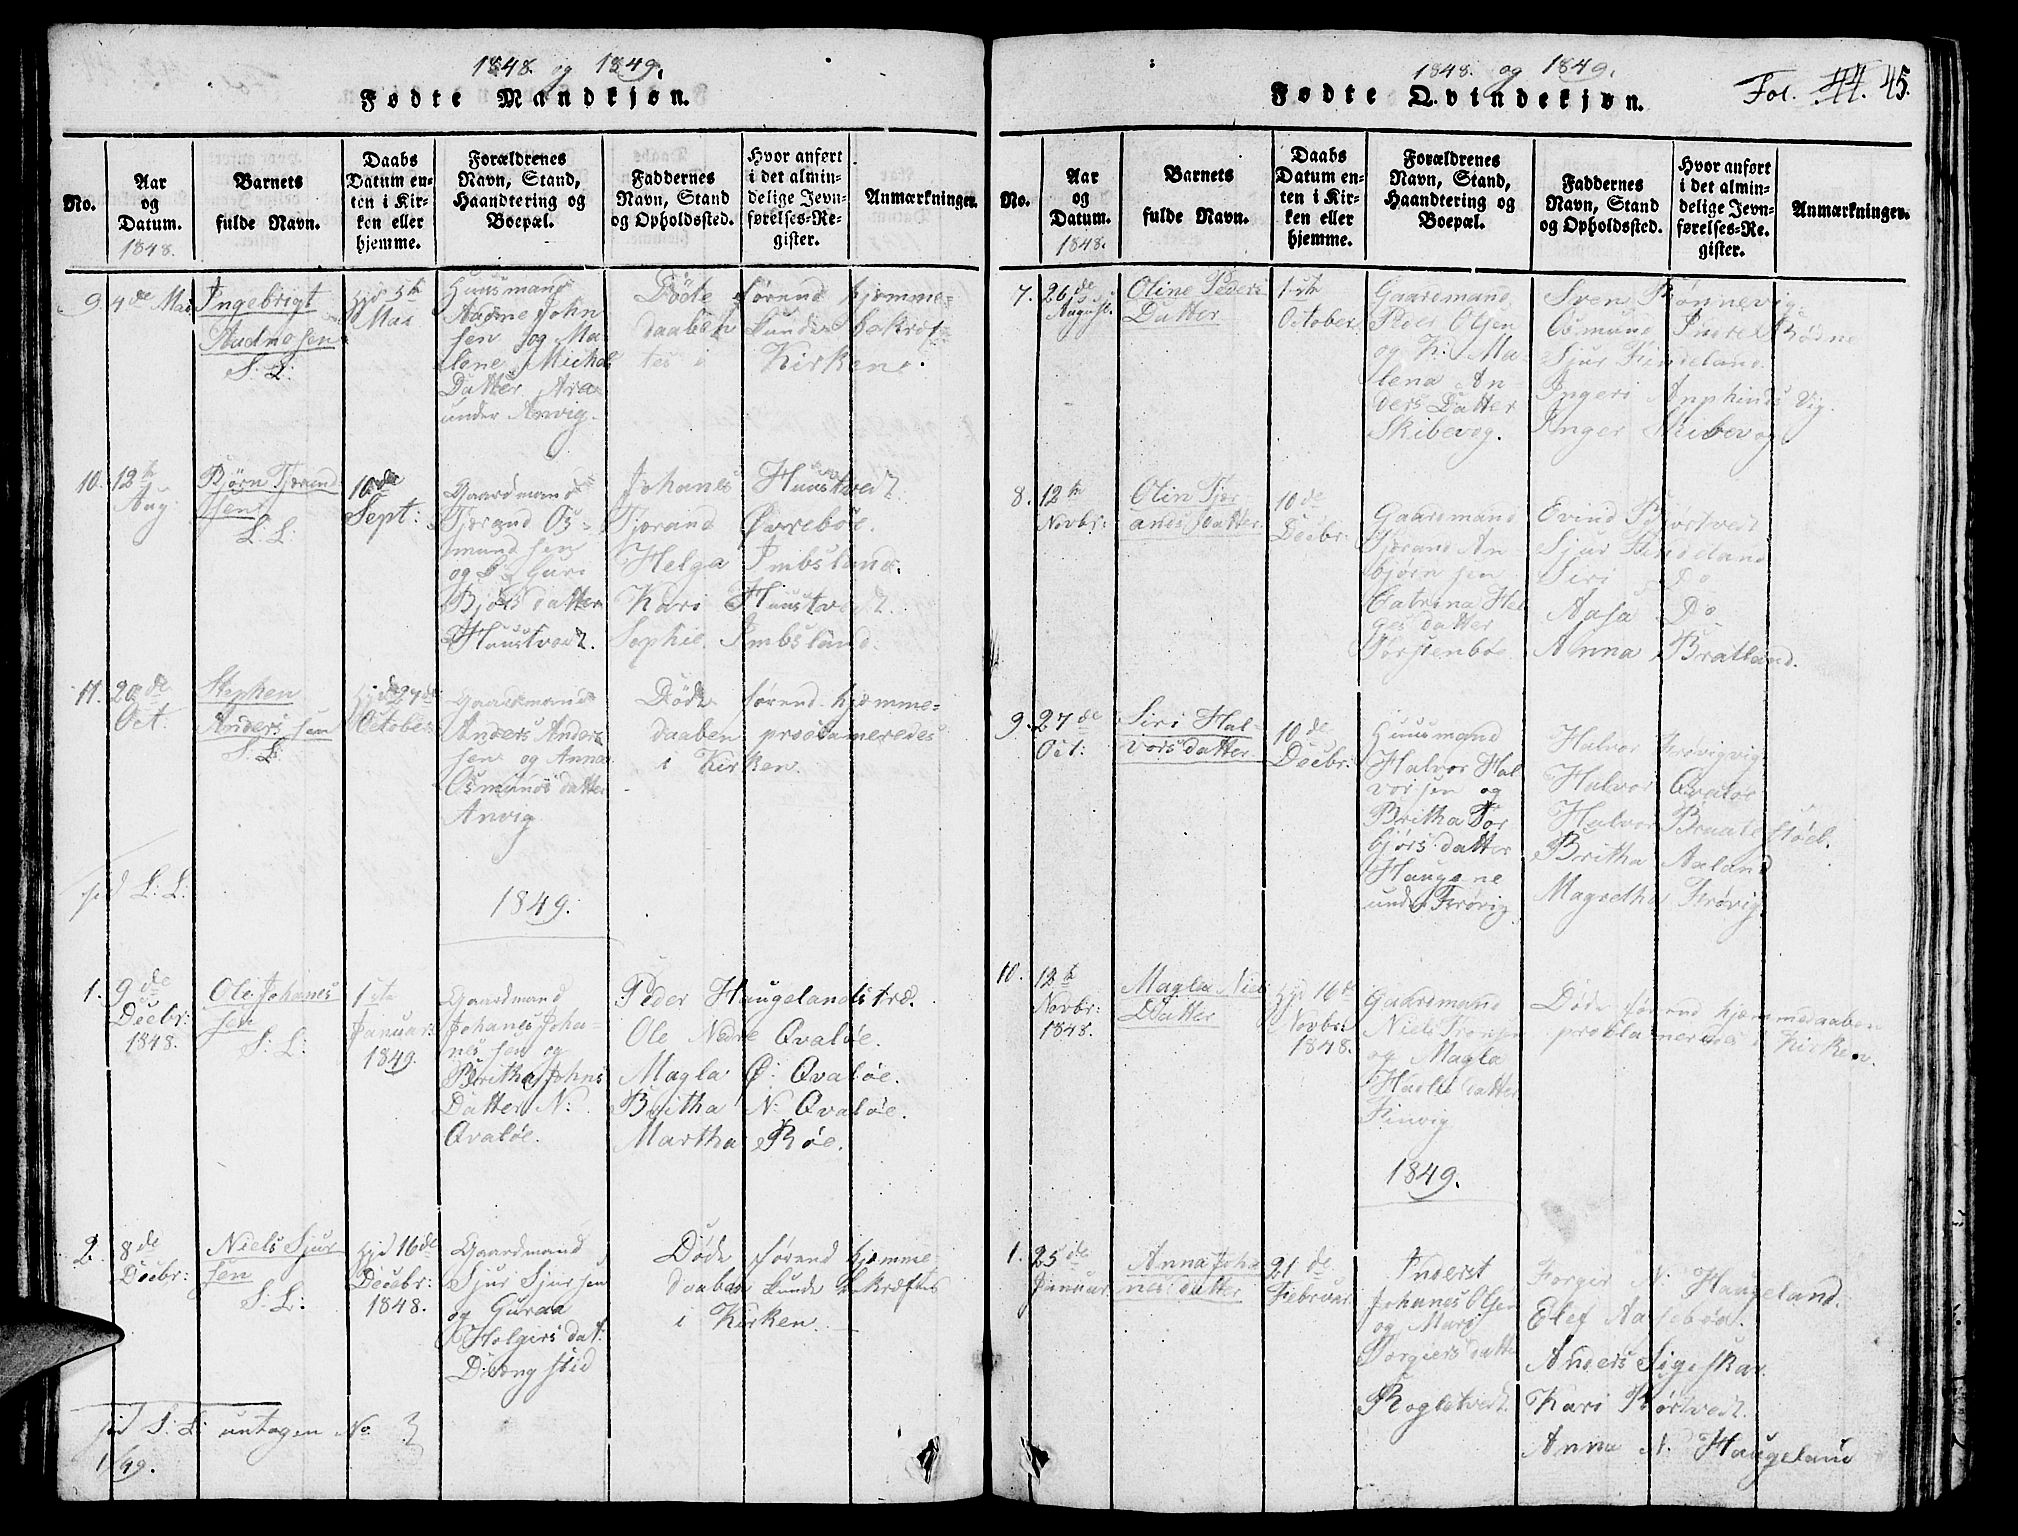 1848. og 1849.
Fødte Mandkjøn.
No.
Aar og Datum.
1848.
Barnets fulde Navn.
Daabs Datum enten i Kirken eller hjemme.
Forældrenes Navn, Stand, Haandtering og Boepæl.
Faddernes Navn, Stand og Opholdssted.
Hvor anført i det almindelige Jevnførelses-Register.
Anmærkninger.
9. 4de Mai
Ingebrigt
Audnesen
S: L:
Hjd 5te
Mai
Huusmand
Audne John
sen og Ma
lene Michels
Datter Ara
under Anvig.
Døde førend hjemme-
daaben kunde bekræf
tes i Kirken.
10. 12te
Aug:
Bjørn Tjerand
sen
L: L:
10de
Sept:
Gaardmand
Tjerand Os-
mundsen
og Guri
Bjørsdatter
Huustvedt.
Johanes Huustvedt.
Tjerand Øvrebøe.
Helga Imbsland.
Kari Huustvedt.
Sophie Imbsland.
11. 20de
Oct.
Stephen
Andersen
S: L:
Hjd 27de
October
Gaardmand
Anders Anders
sen og Anna
Osmundsdatter
Anvig
Døde førend hjemme-
daaben proclameredes
i Kirken.
sed L: L:
1849.
1. 9de
Decbr:
1848.
Ole Johanes
sen
S: L:
1ste
Januar:
1849.
Gaardmand
Johanes Joha-
nessen og
Britha Johns
Datter N:
Qvaløe.
Peder Haugelandstræ.
Ole Nedre Qvaløe.
Magla Ø: Qvaløe.
Britha N: Qvaløe.
Martha Røe.
2. 8de
Decbr:
Niels Sjur
sen
S: L:
Hjd 16de
Decbr:
1848.
Gaardmand
Sjur Sjursen
og Guraa
Holgersdat:
Drengstid
Døde førend hjemme-
daaben kunde bekræftes
i Kirken.
sed S: L: untagen No 3
1849.
1848. og 1849.
Fødte Qvindekjøn.
Fol. 44. 45.
No.
Aar og Datum.
1848.
Barnets fulde Navn.
Daabs Datum enten i Kirken eller hjemme.
Forældrenes Navn, Stand, Haandtering og Boepæl.
Faddernes Navn, Stand og Opholdssted.
Hvor anført i det almindelige Jevnførelses-Register.
Anmærkninger.
7. 26de
August.
Oline Peders
Datter
1ste
October
Gaardmand
Peder Olsen
og K: Ma-
lena An-
ders Datter
Skibevog.
Sven Rønnevig.
Osmund Indre Rødne
Sjur Hindeland.
Ingeri Anphinds Vig.
Inger Skibevog
8. 12te
Novbr:
Olin Tjer
andsdatter
10de
Decbr:
Gaardmand
Tjerand An-
bjørnsen
Catrina Hel
gesdatter
Torstenbøe
Evind Børtvedt
Sjur Hindeland
Siri Do
Aasa Do
Anna Bratland.
9. 27de
Oct:
Siri Hal-
vorsdatter
10de
Decbr:
Huusmand
Halvor Hal
vorsen og
Britha Tor
bjørsdatter
Haugene
under Frøvig
Halvor Frøvigvig
Halvor Qvaløe
Halvor Braatestøeb.
Britha Aaland
Magretha Frøvig
10. 12te
Novbr:
1848.
Magla Niels
Datter
Hjd 16de
Novbr:
1848.
Gaardmand
Niels
og Magla
datter
Finvig
Døde førend hjemmedaaben
proklameredes i Kirken.
1849.
1. 25de
Januar
Anna Joha
nesdatter
21de
Februar
Inderst
Johanes Olsen
og Mari
Torgiersdatter
Rogletvedt
Torger N: Haugeland.
Elef Aasebøe.
Anders Sigeskar
Kari Børtvedt.
Anna N. Haugeland